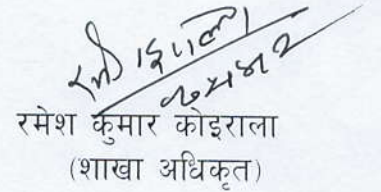 रमेश कुमार कोइराला
(शाखा अधिकृत)